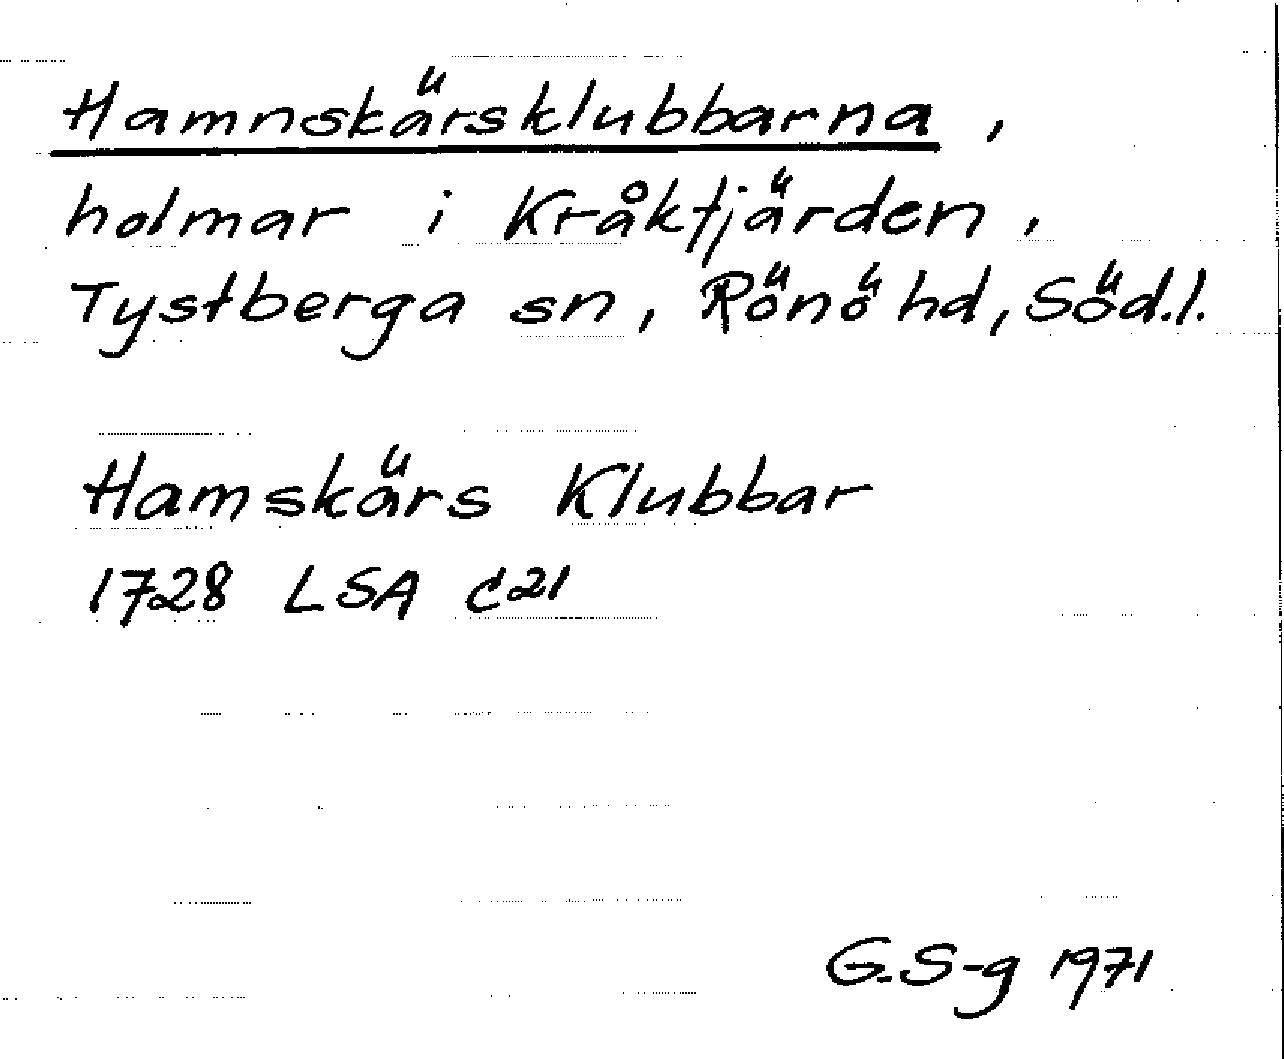 Hamnskärsklubbarna,
holmar i Kråkfjärden,
Tystberga sn, Rönö hd, Söd.l.
Hamskärs Klubbar
1728 LSA C21
G.S-g 1971